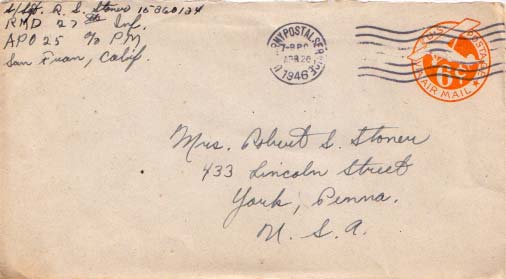 S/Sgt. R. S. Stoner
RMD 27th Inf.
APO 25 c/o PM
San Fran, Calif.
U.S. ARMY POSTAL SERVICE
APR 26
1946
U.S. POSTAGE
6¢
VIA AIR MAIL
Mrs. Robert S. Stoner
433 Lincoln Street
York, Penna.
U. S. A.